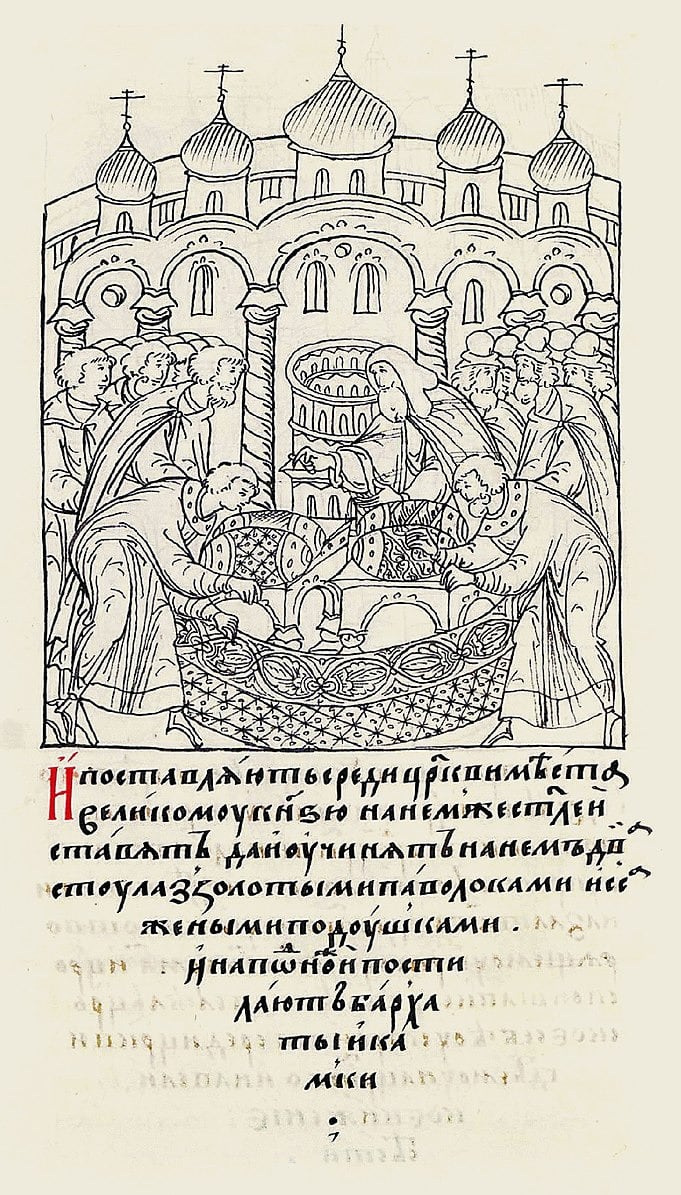 И поставлѧ́ють среди цр҃кви мѣ́ста
вели́комоу кн҃зю на немже ст҃лей
ста́вѧтъ да и оучинѧтъ на немъ двⷶ
стоула з золотыми па́волоками и саⷤ
жеными подоушками .
и на поⷣноⷤи пости
лають ба́рха
ты и ка
мки